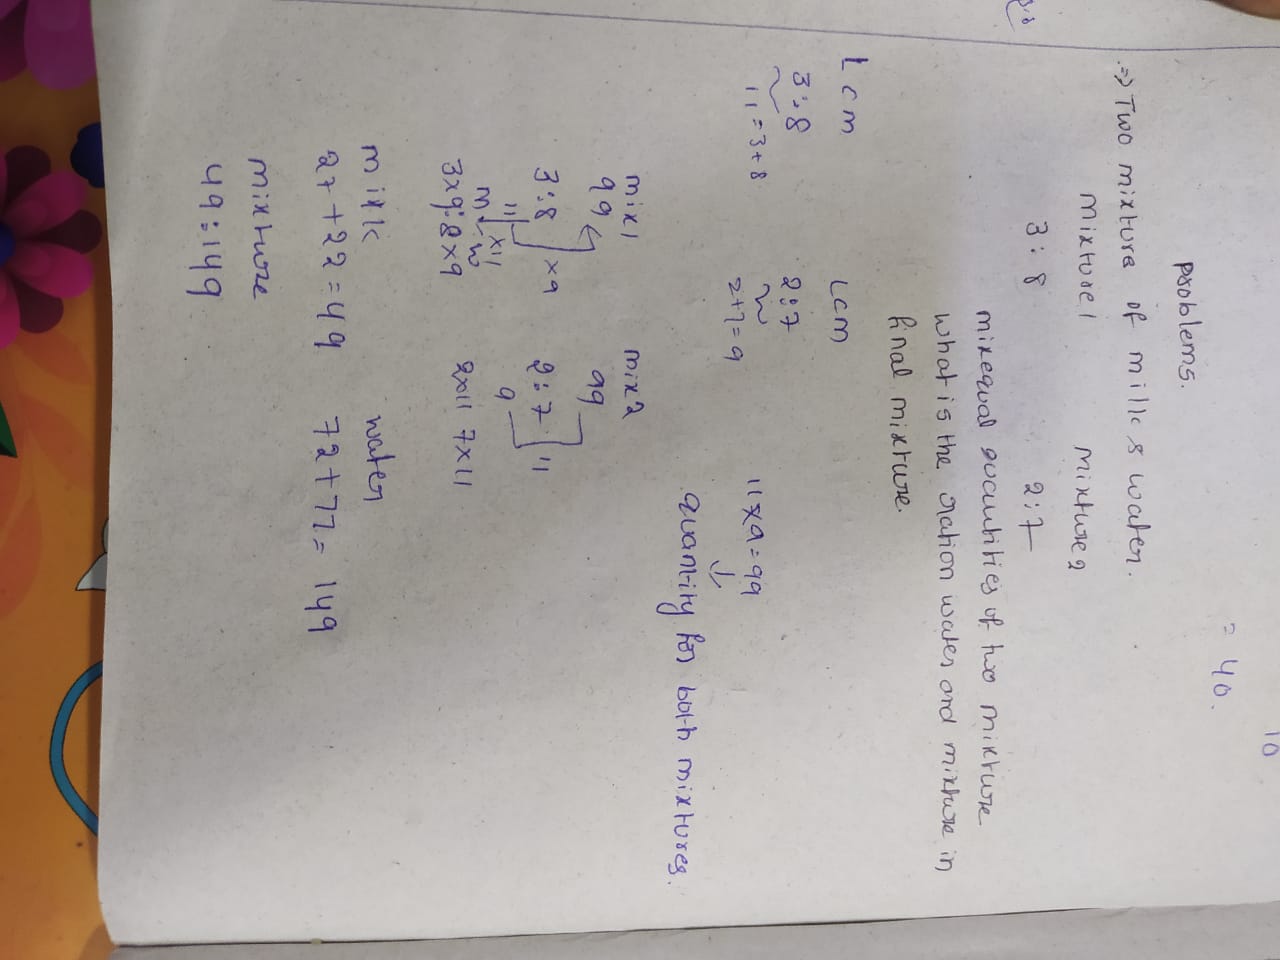 10
= 40.
problems.
=> Two mixture of milk & water.
mixture1 mixture2
3:8 2:7
mixequal quantities of two mixture
what is the ration water and mixture in
final mixture.
Lcm Lcm
3:8 2:7
11=3+8 2+7=9 11x9=99
quantity for both mixtures.
mix1 mix2
99 99
3:8 x9 2:7 11
11 9
x11
m w
3x9:8x9 2x11 7x11
milk water
27+22=49 72+77= 149
mixture
49:149